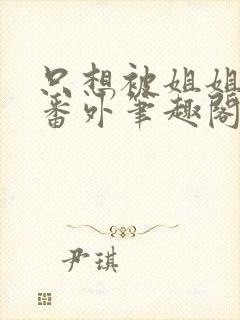 只想被姐姐
番外笔趣阁
尹琪